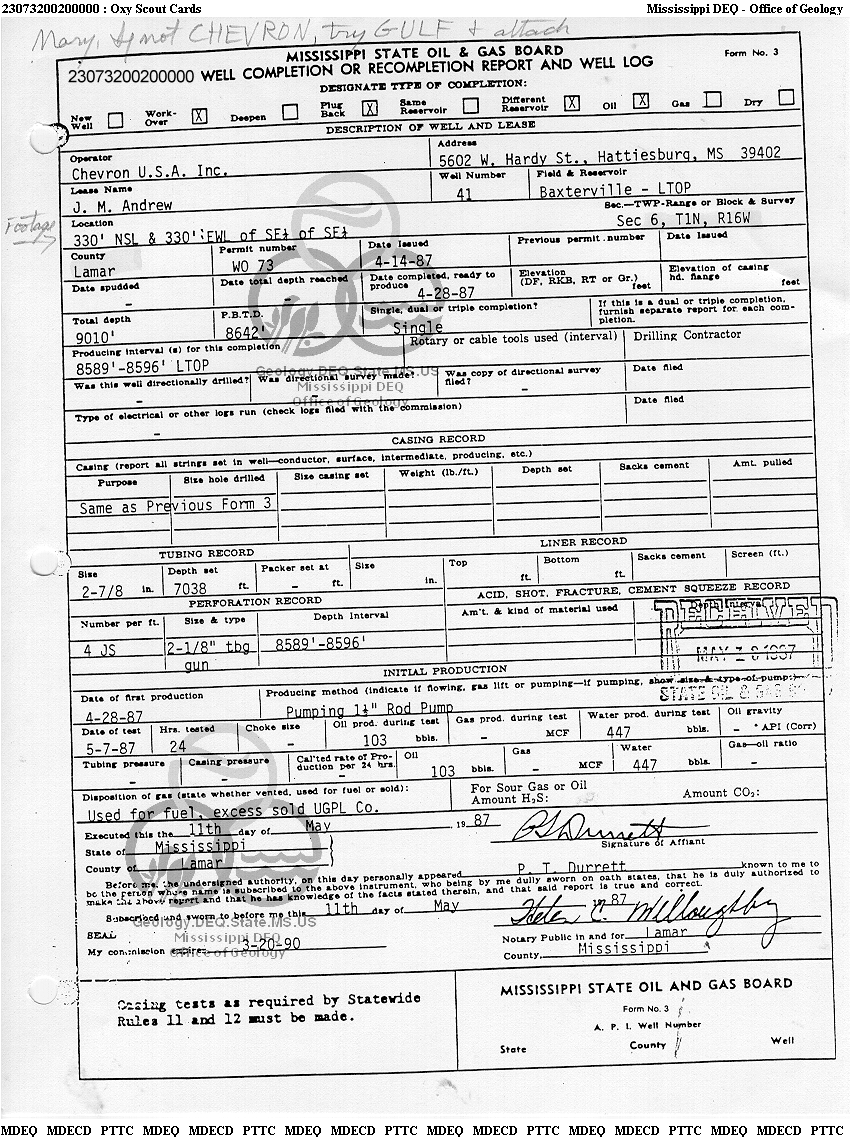 23073200200000 : Oxy Scout Cards Mississippi DEQ - Office of Geology
Mary, if not CHEVRON, try GULF & attach
MISSISSIPPI STATE OIL & GAS BOARD Form No. 3
23073200200000 WELL COMPLETION OR RECOMPLETION REPORT AND WELL LOG
DESIGNATE TYPE OF COMPLETION:
New Well Work-Over X Deepen Plug Back X Same Reservoir Different Reservoir X Oil X Gas Dry
DESCRIPTION OF WELL AND LEASE
Operator Address
Chevron U.S.A. Inc. 5602 W. Hardy St., Hattiesburg, MS 39402
Lease Name Well Number Field & Reservoir
J. M. Andrew 41 Baxterville - LTOP
Footage
Location Sec.—TWP-Range or Block & Survey
330' NSL & 330' EWL of SE¼ of SE¼ Sec 6, T1N, R16W
County Permit number Date Issued Previous permit number Date Issued
Lamar WO 73 4-14-87
Date spudded Date total depth reached Date completed, ready to produce Elevation (DF, RKB, RT or Gr.) feet Elevation of casing hd. flange feet
- - 4-28-87
Total depth P.B.T.D. Single, dual or triple completion? If this is a dual or triple completion, furnish separate report for each completion.
9010' 8642' Single
Producing interval (s) for this completion Rotary or cable tools used (interval) Drilling Contractor
8589'-8596' LTOP
Was this well directionally drilled? Was directional survey made? Was copy of directional survey filed? Date filed
- - -
Type of electrical or other logs run (check logs filed with the commission) Date filed
-
Geology.DEQ.State.MS.US
Mississippi DEQ
Office of Geology
CASING RECORD
Casing (report all strings set in well—conductor, surface, intermediate, producing, etc.)
Purpose Size hole drilled Size casing set Weight (lb./ft.) Depth set Sacks cement Amt. pulled
Same as Previous Form 3
TUBING RECORD LINER RECORD
Size Depth set Packer set at Size Top Bottom Sacks cement Screen (ft.)
2-7/8 in. 7038 ft. - ft. in. ft. ft.
PERFORATION RECORD ACID, SHOT, FRACTURE, CEMENT SQUEEZE RECORD
Number per ft. Size & type Depth Interval Am't. & kind of material used Depth Interval
4 JS 2-1/8" tbg gun 8589'-8596'
RECEIVED
STATE OIL & GAS
INITIAL PRODUCTION
Date of first production Producing method (indicate if flowing, gas lift or pumping—if pumping, show size & type of pump:)
4-28-87 Pumping 1½" Rod Pump
Date of test Hrs. tested Choke size Oil prod. during test Gas prod. during test Water prod. during test Oil gravity
5-7-87 24 - 103 bbls. - MCF 447 bbls. - ° API (Corr)
Tubing pressure Casing pressure Cal'ted rate of Production per 24 hrs. Oil Gas Water Gas—oil ratio
- - - 103 bbls. - MCF 447 bbls. -
Disposition of gas (state whether vented, used for fuel or sold): For Sour Gas or Oil
Used for fuel, excess sold UGPL Co. Amount H2S: Amount CO2:
Executed this the 11th day of May 19 87
State of Mississippi Signature of Affiant
County of Lamar
Before me, the undersigned authority, on this day personally appeared P. T. Durrett known to me to
be the person whose name is subscribed to the above instrument, who being by me dully sworn on oath states, that he is duly authorized to
make the above report and that he has knowledge of the facts stated therein, and that said report is true and correct.
Subscribed and sworn to before me this 11th day of May 19 87
Helen C. Willoughby
Geology.DEQ.State.MS.US
SEAL Mississippi DEQ Notary Public in and for Lamar
My commission expires 3-20-90 Office of Geology County, Mississippi
Casing tests as required by Statewide
Rules 11 and 12 must be made.
MISSISSIPPI STATE OIL AND GAS BOARD
Form No. 3
A. P. I. Well Number
State County Well
MDEQ MDECD PTTC MDEQ MDECD PTTC MDEQ MDECD PTTC MDEQ MDECD PTTC MDEQ MDECD PTTC MDEQ MDECD PTTC